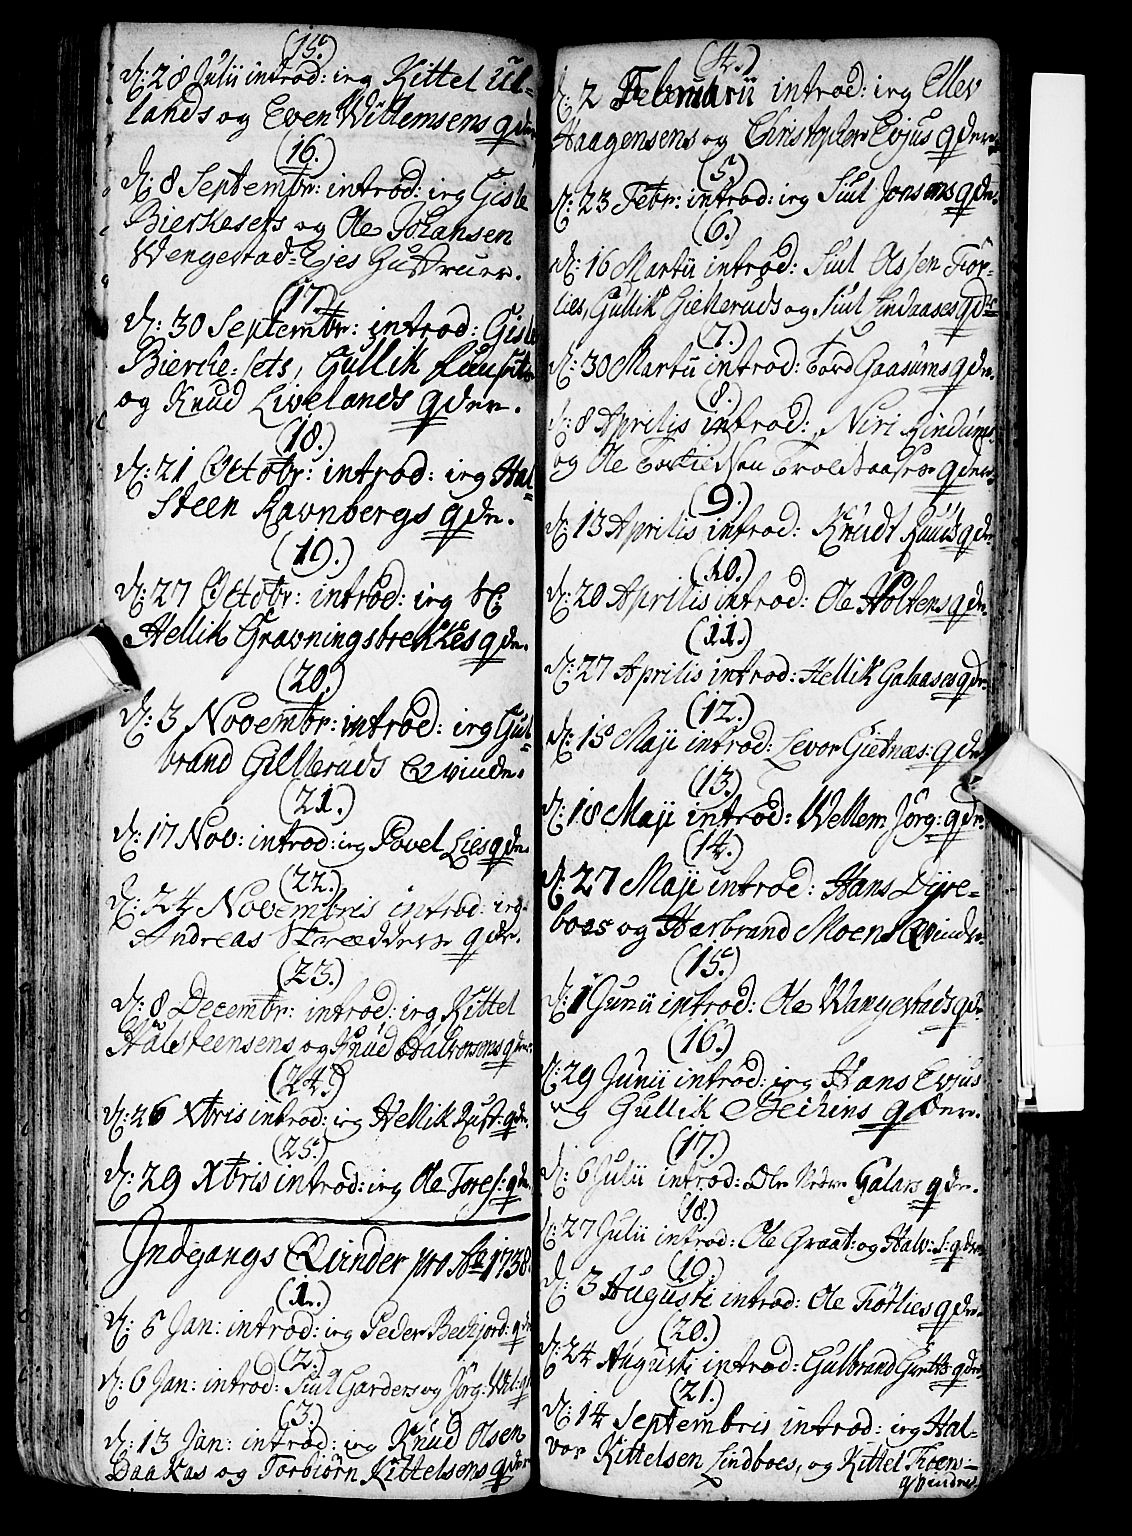 (15.)
d: 28 Julii introd: ieg Kittel Ul-
lands og Even Willemsens qder
(16.)
d: 8 Septembr: introd: ieg Gisle
Bierkesets og Ole Johansen
Wengestad=Ejes Hustruer.
(17.)
d: 30 Septembr: introd: Gisle
Bierche-sets, Gullik
og Knud Livelands qder.
(18.)
d: 21 Octobr: introd: ieg Hal=
steen Ravnbergs qde.
(19.)
d: 27 Octobr: introd: ieg
Hellik Gravningsbrekkes qde.
(20.)
d: 3 Novembr: introd: ieg Gul=
brand Gilleruds Qvinde.
(21.)
d: 17 Nov: introd: ieg Povel Lies qde.
(22.)
d: 24 Novembris introd: ieg
Andreas Skrædders qde.
(23.)
d: 8 Decembr: introd: ieg Kittel
Halsteensens og Knud Halvorsens qder.
(24.)
d: 26 Xbris introd: ieg Hellik Rust: qde.
(25.)
d: 29 Xbris introd: ieg Ole Tores: qde
Indgangs Qvinder pro Ao 1738.
(1.)
d: 5 Jan: introd: ieg Peder Bechjord: qde
(2.)
d: 6 Jan: introd: Siul Garders og Jörg: Wel: q
(3.)
d: 13 Jan: introd: ieg Knud Olsen
Daakas og Torbiörn Kittelsens qder
(4.)
d: 2 Februarii introd: ieg Ellev
Haagensens og Christopher Evjus qder.
(5.)
d: 23 Febr: introd: ieg Siul Jonsens qde.
(6.)
d: 16 Martii introd: Siul Olssen Trör-
lies, Gullik Gielleruds og Siul Lindaases qder
(7.)
d: 30 Martii introd: Tord Gaasums qde.
(8.)
d: 8 Aprilis introd: Niri
og Ole qder.
(9.)
d: 13 Aprilis introd: Knudt Ruuds qde.
(10.)
d: 20 Aprilis introd: Ole Holtens qde.
(11.)
d: 27 Aprilis introd: Hellik Galaases qde.
(12.)
d: 15 Maji introd: Levor Gietnæs: qde
(13.)
d: 18 Maji introd: Wellem Jörg: qde.
(14.)
d: 27 Maji introd: Hans Dyre=
boes og Herbrand Moens Qvinder.
(15.)
d: 1 Junii introd: Ole Wangestads qde
(16.)
d: 29 Junii introd: ieg Hans Evjus
og Gullik Bechins qder.
(17.)
d: 6 Julii introd: Ole Nedre Galaas qde.
(18.)
d: 27 Julii introd: Ole Graat: og Halv: S: qder
(19.)
d: 3 Augusti introd: Ole Trötlies qde.
(20.)
d: 24 Augusti introd: Gulbrand qde
(21.)
d: 14 Septembris introd: ieg Hal-
vor Kittelsen Lindboes, og Kittel Troens-
qvinder.